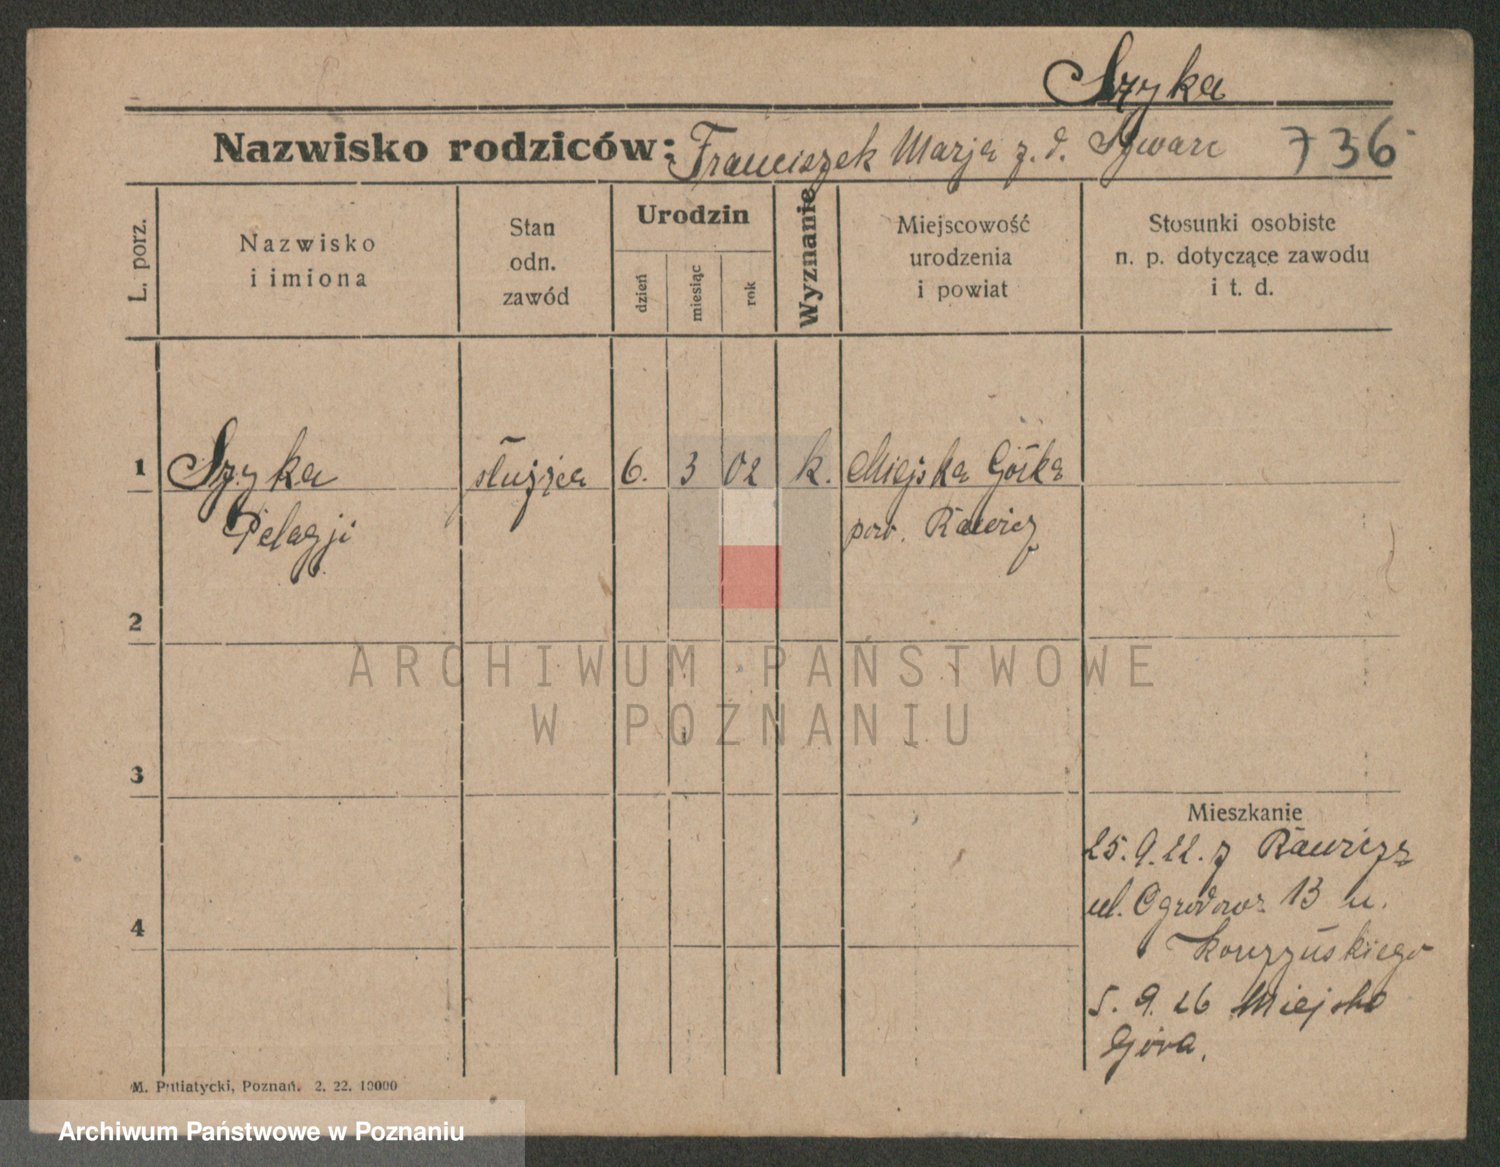 Szyka
Nazwisko rodziców: Franciszek Marja z. d. 736
L. porz.
Nazwisko
i imiona
Stan
odn.
zawód
Urodzin
dzień
miesiąc
rok
Wyznanie
Miejscowość
urodzenia
i powiat
Stosunki osobiste
n. p. dotyczące zawodu
i t. d.
1 Szyka służąca 6. 3 02 k. Miejska Górka
Pelagji pow. Rawicz
2
ARCHIWUM PAŃSTWOWE
W POZNANIU
3
Mieszkanie
25.9.22. z Rawicza
ul. Ogrodowa 13 u.
4
5. 9. 26 Miejska
Góra.
M. Putiatycki, Poznań. 2. 22. 10000
Archiwum Państwowe w Poznaniu